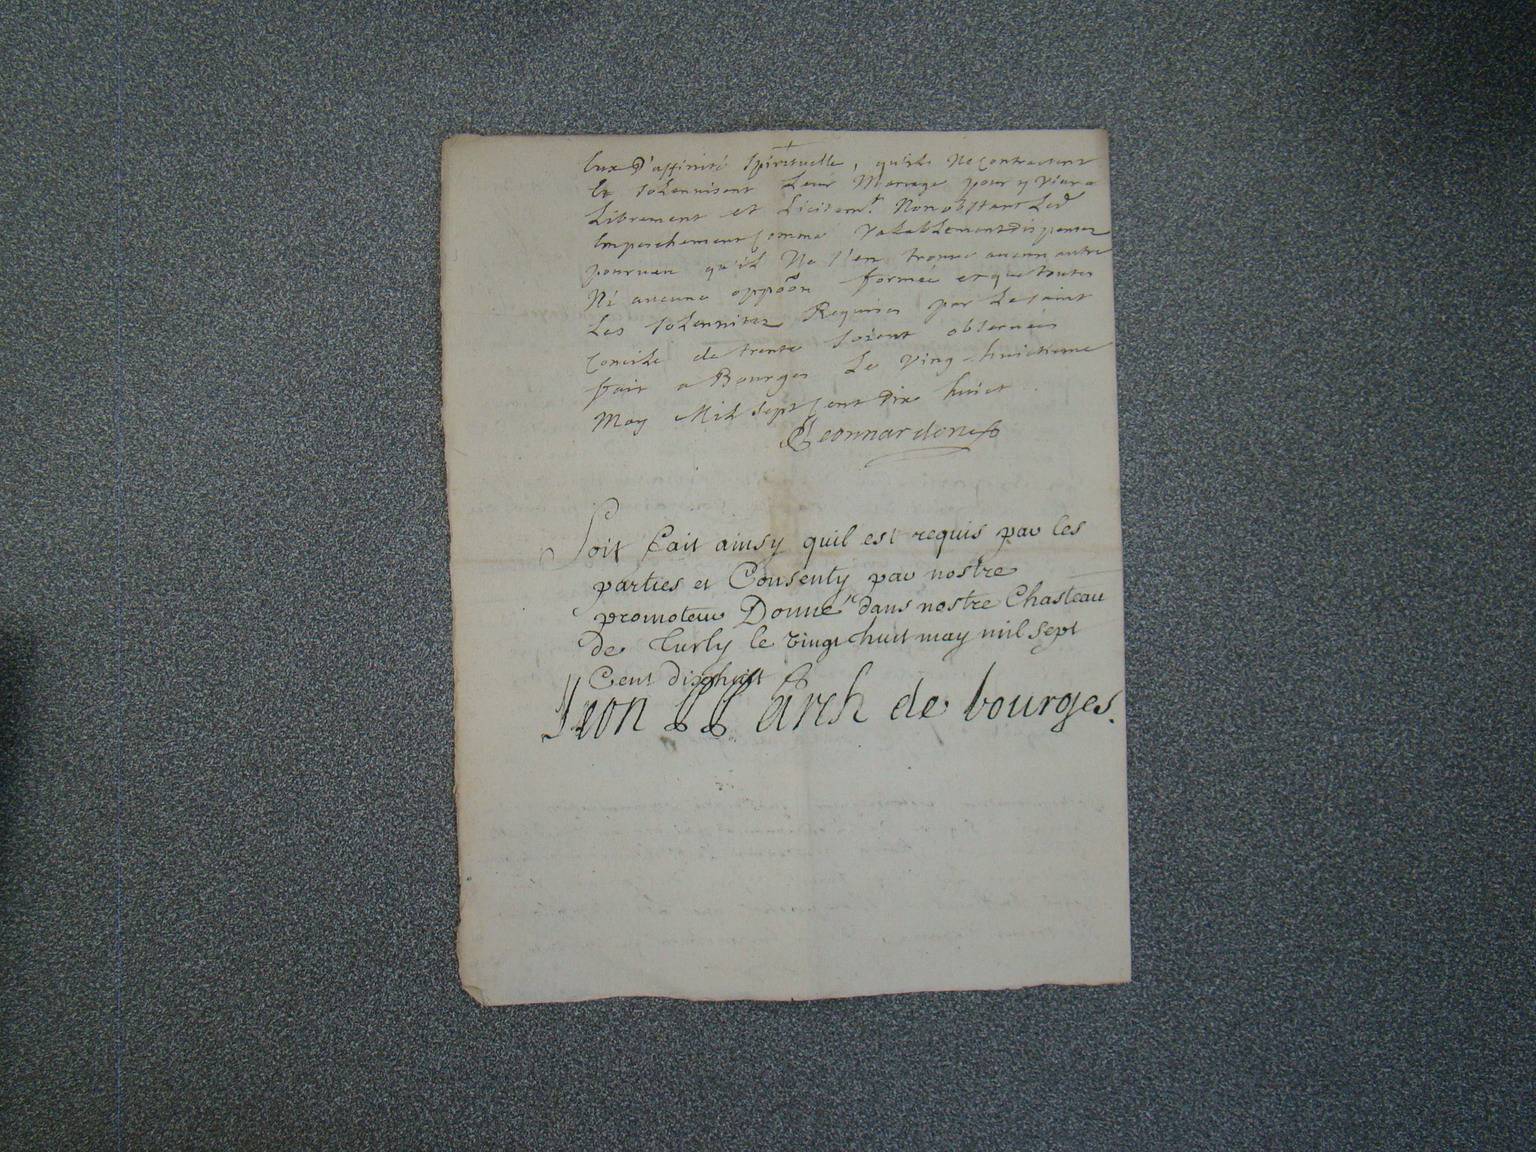 Eux D'affinité Spirituelle, qu'ils Ne Contractent
Et Solennisent Leur Mariage pour y Viure
Librement et Licitemt. Nonobstant Led
Empeschement Comme Valablement dispensez
pourueu qu'il Ne S'en trouue aucun autre
Ni aucune oppoon formée et que toutes
Les Solennitez Requises par Le saint
Concile de trente Soient obseruées
fait a Bourges Le Ving-huictieme
May Mil Sept Cent Dix huict
Soit fait ainsy quil est requis par les
parties et Consenty par nostre
promoteur Donné dans nostre Chasteau
de Turly le vingt huit may mil sept
Cent dixhuit
Leon PP Arch de bourges.